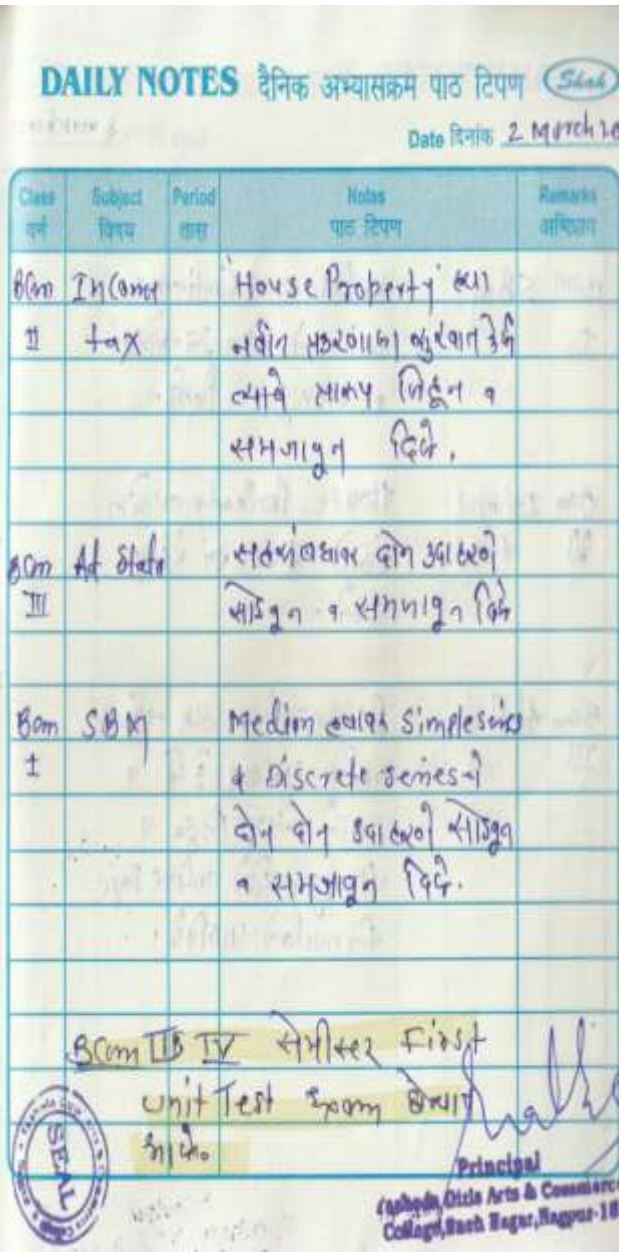 DAILY NOTES दैनिक अभ्यासक्रम पाठ टिपण Shah
Date दिनांक 2 March 20
Class Subject Period Notes Remarks
वर्ग विषय तास पाठ टिपण अभिप्राय
BCom Income 'House Property' ह्या
II tax नवीन प्रकरणाला सुरवात
त्याचे प्रारूप लिहून व
समजावून दिले.
BCom Ad Stats सहसंबंधावर दोन उदाहरणे
III सोडवून व समजावून दिले
Bcom SBM हयावर Simple series
I व Discrete series चे
दोन दोन उदाहरणे सोडवून
व समजावून दिले.
BCom II IV First
Unit Test Exam घेण्यात
आले.
SEAL
Principal
Girls Arts & Commerce
College, Nagar, Nagpur-18